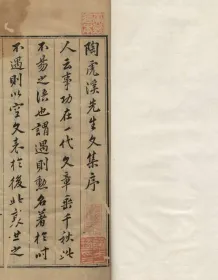 陶虎溪先生文集序
人云事功在一代文章垂千秋此
不易之語也謂遇則勲名著於時
不遇則以空文表於後此